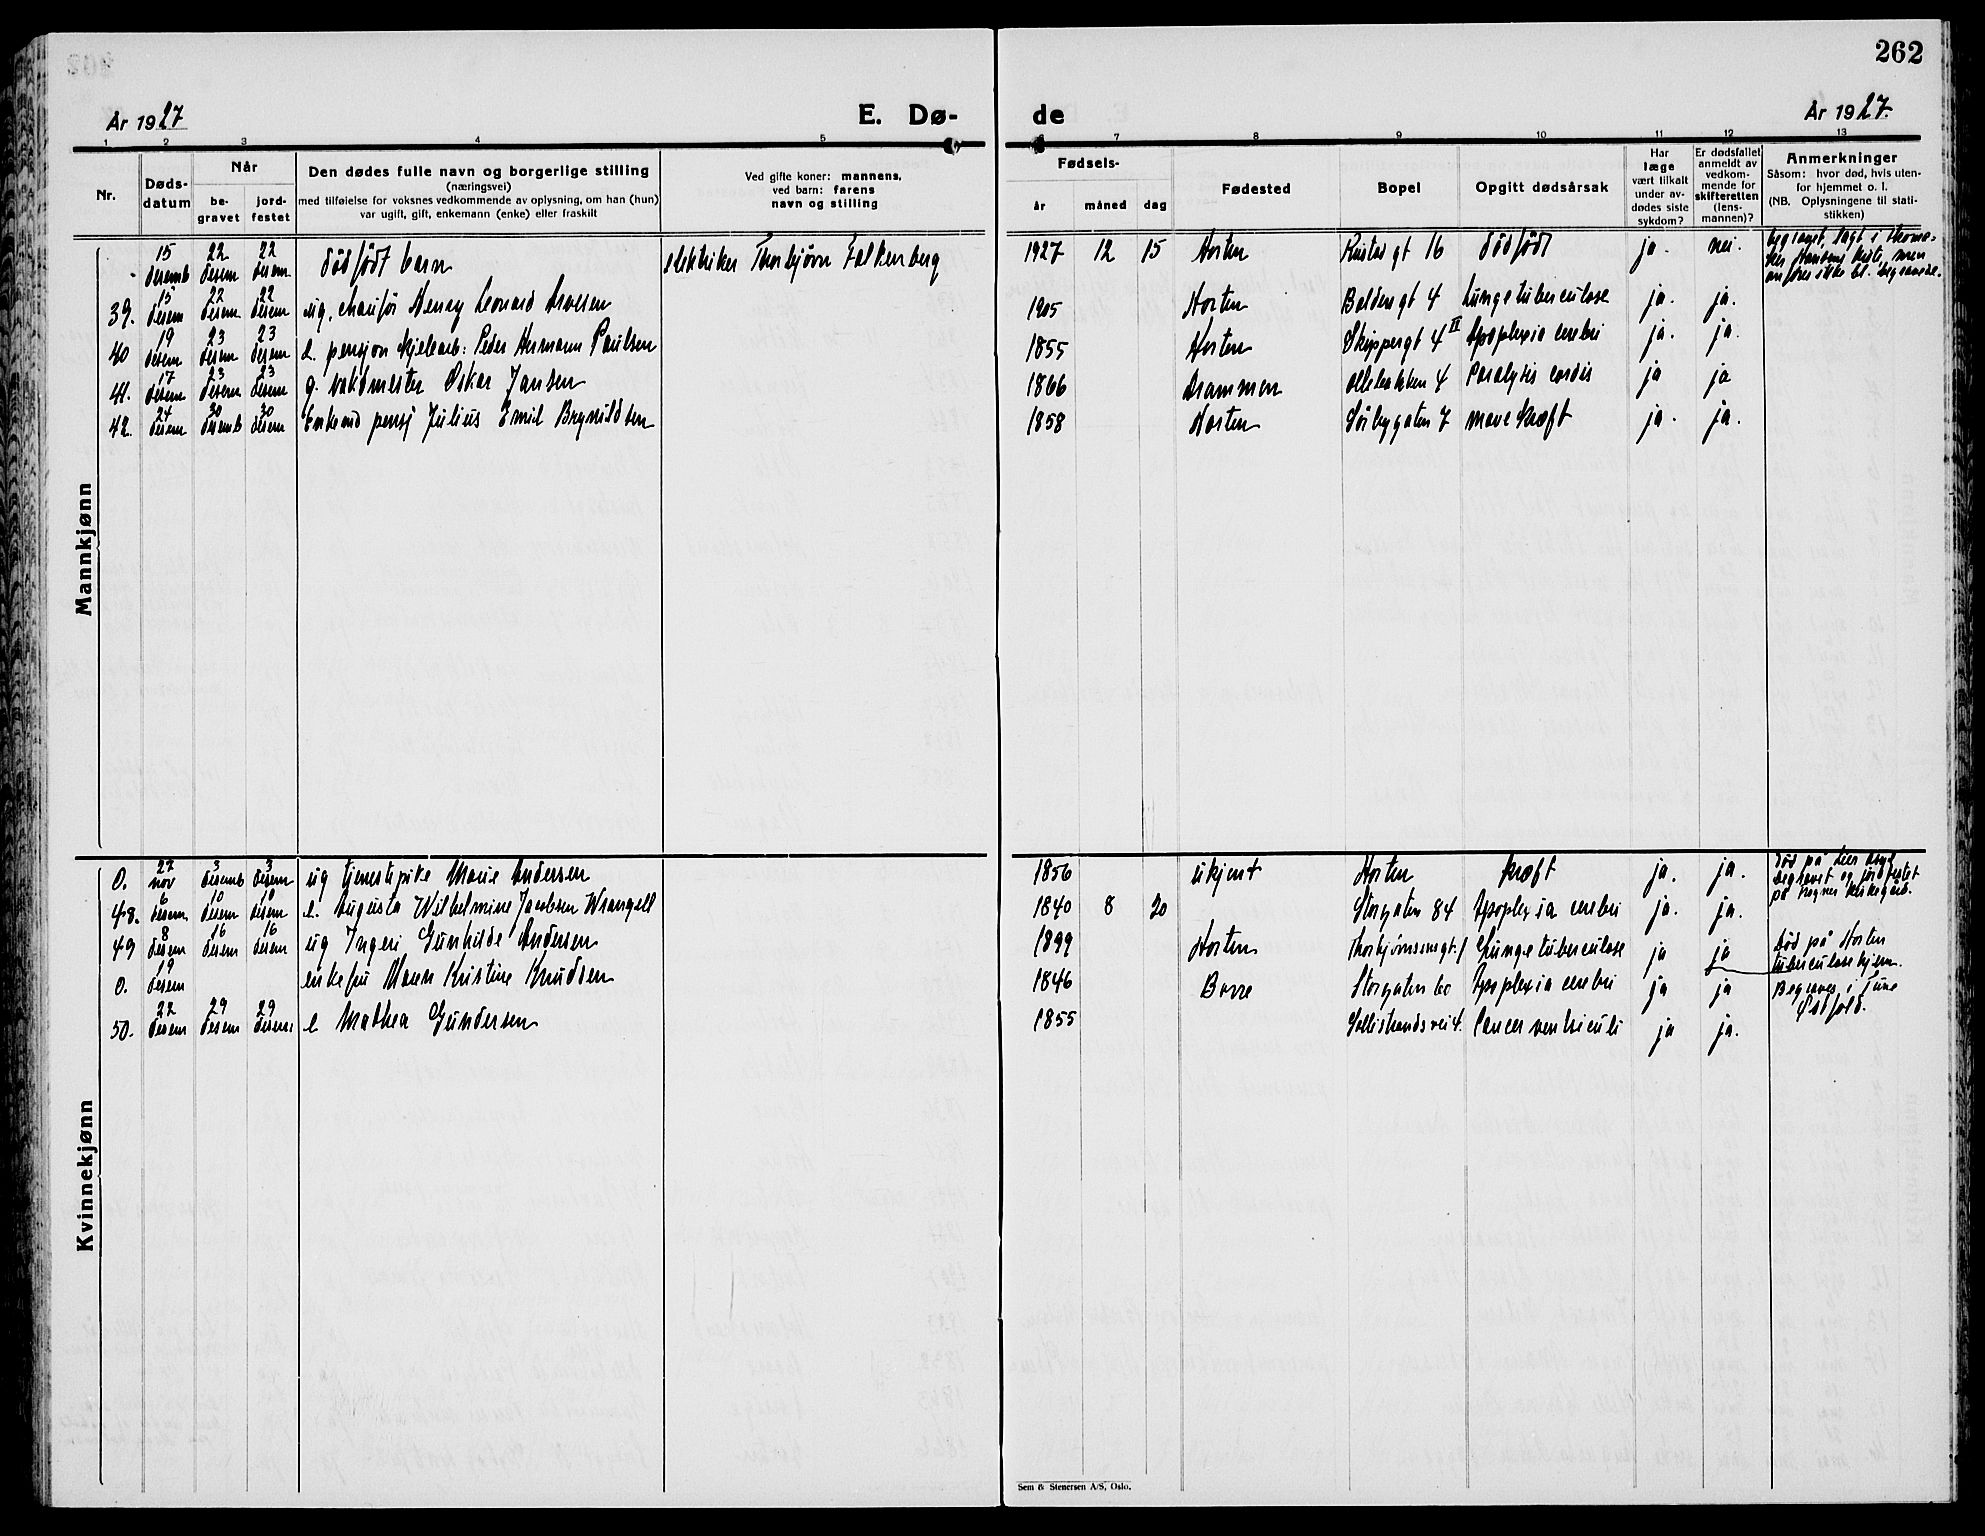 262
År 1927
E. Dø-
de
År 1927.
1 2 3 4 5 6 7 8 9 10 11 12 13
Nr.
Døds-
datum
Når
be-
gravet
jord-
festet
Den dødes fulle navn og borgerlige stilling
(næringsvei)
med tilføielse for voksnes vedkommende av oplysning, om han (hun)
var ugift, gift, enkemann (enke) eller fraskilt
Ved gifte koner: mannens,
ved barn: farens
navn og stilling
Fødsels-
år måned dag
Fødested
Bopel
Opgitt dødsårsak
Har
læge
vært tilkalt
under av-
dødes siste
sykdom?
Er dødsfallet
anmeldt av
vedkom-
mende for
skifteretten
(lens-
mannen)?
Anmerkninger
Såsom: hvor død, hvis uten-
for hjemmet o. l.
(NB. Oplysningene til stati-
stikken)
Mannkjønn
- 15 desemb 22 desem 22 desem dødfødt barn elektriker Thorbjørn Falkenberg 1927 12 15 Horten gt 16 dødfødt ja. nei. begravet, lagt i kiste, men anføres ikke bl. begravede.
39. 15 desem 22 desem 22 desem ug. chauffør Henry Leonard 1905 Horten Baldersgt 4 Lungetuberculose ja. ja.
40 19 desem 23 desem 23 desem e. pensjon kjelearb: Peder Hermann Paulsen 1855 Horten Skippergt 4 II Apoplexia cerebri ja. ja.
41. 17 desem 23 desem 23 desem g. vaktmester Oskar Jansen 1866 Drammen 4 Paralysis cordis ja ja
42. 24 desem 30 desemb 30 desem Enkemd pensj Julius Emil Brynildsen 1858 Horten Sørbygaten 7 mavekræft ja. ja.
Kvinnekjønn
0. 27 nov 3 desemb 3 desem ug tjenestepike Marie Andersen 1856 ukjent Horten kræft ja. ja. død på Lier asyl begravet og jordfestet på kirkegård.
48. 6 desem 10 desem 10 desem e. Augusta Wilhelmine Jacobsen Wrangell 1840 8 20 Storgaten 84 Apoplexia cerebri ja. ja.
49 8 desem 16 desem 16 desem ug Ingeri Gunhilde Andersen 1899 Horten Thorbjørnsensgt. 1 Lungetuberculose ja ja død på Horten tuberculosehjem.
0. 19 desem enkefru Maren Kristine Knudsen 1846 Borre Storgaten 60 Apoplexia cerebri ja ja Begraves i Tune Østfold.
50. 22 desem 29 desem 29 desem e Mathea Gundersen 1855 Sollistrandsvei 4. Cancer ventriculi ja ja.
Sem & Stenersen A/S, Oslo.